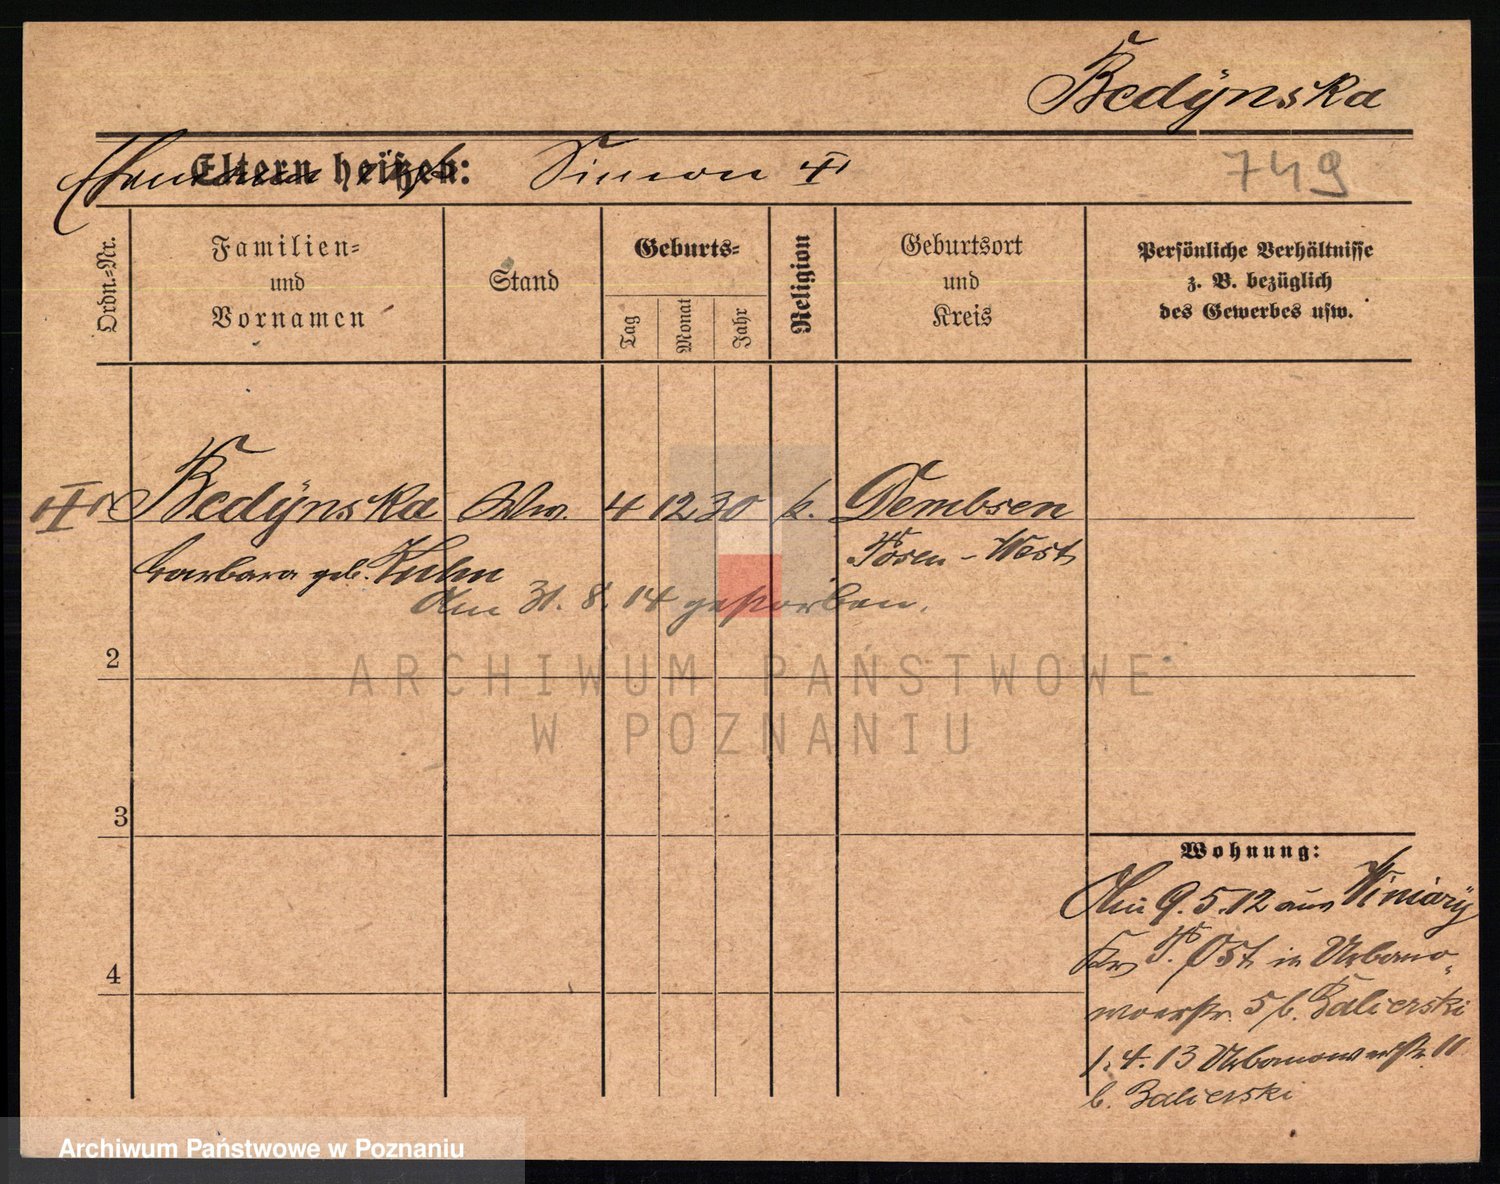 Bedÿnska
Eltern heißen: Simon
749
Ordn.=Nr.
Familien=
und
Vornamen
Stand
Geburts=
Tag
Monat
Jahr
Religion
Geburtsort
und
Kreis
Persönliche Verhältnisse
z. B. bezüglich
des Gewerbes usw.
Bedÿnska Ww. 4 12 30 k. Dembsen
Barbara geb. Kuhn Posen - West
Am 31. 8. 14 gestorben.
2
3
4
Wohnung:
9. 5. 12 aus Winiarÿ
Kr. P. Ost in Urbano-
werstr. 5 b. Balierski
1. 4. 13 Urbanowerstr. 11
b. Balierski
ARCHIWUM PAŃSTWOWE
W POZNANIU
Archiwum Państwowe w Poznaniu